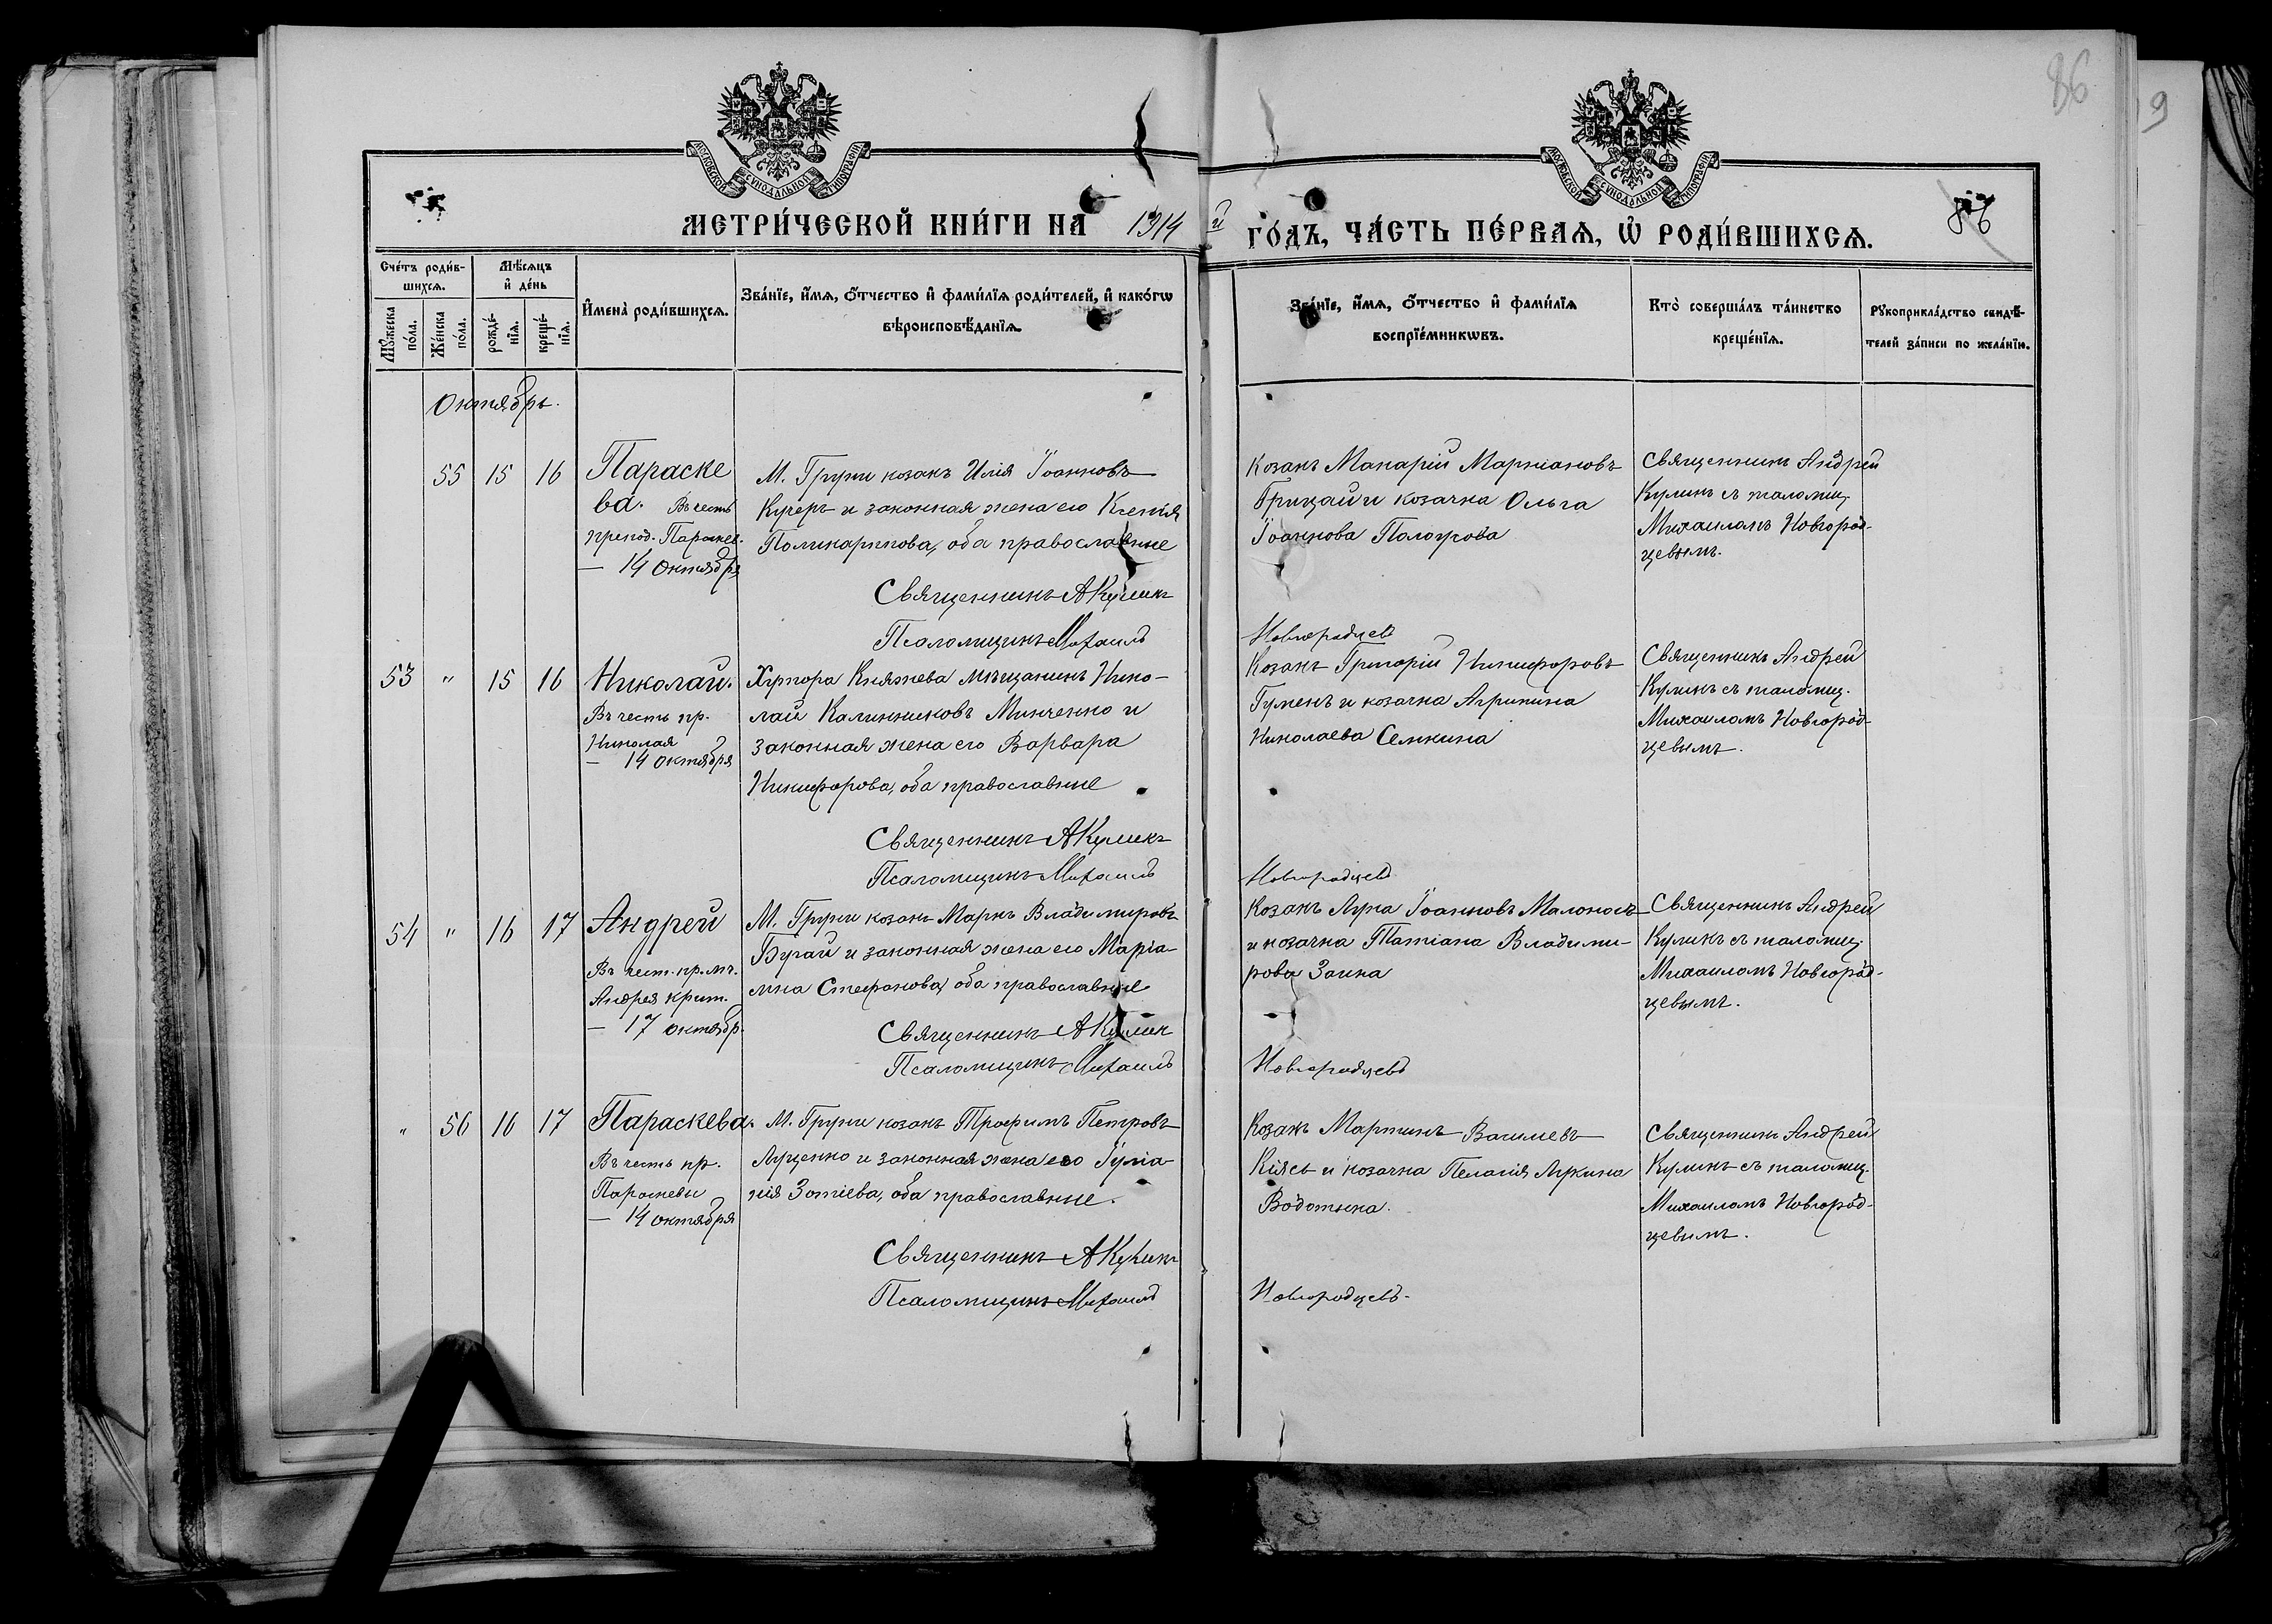 86
9
МОСКОВСКОЙ СѴНОДАЛЬНОЙ ТИПОГРАФІИ
МОСКОВСКОЙ СѴНОДАЛЬНОЙ ТИПОГРАФІИ
МЕТРИ́ЧЕСКОЙ КНИ́ГИ НА 1914 й ГО́ДЪ, ЧА́СТЬ ПЕ́РВАѦ, Ѡ҆ РОДИ́ВШИХСѦ.
86
Сче́тъ роди́в-
шихсѧ.
Мꙋ́жеска по́ла.
Же́нска по́ла.
Мѣ́сѧцъ
и҆ де́нь
рожде́-
нїѧ.
креще́-
нїѧ.
И҆мена̀ роди́вшихсѧ.
Зва́нїе, и҆́мѧ, ѻ҆́тчество и҆ фами́лїѧ роди́телей, и҆ како́гѡ
вѣроисповѣ́данїѧ.
Зва́нїе, и҆́мѧ, ѻ҆́тчество и҆ фами́лїѧ
воспрїе́мникѡвъ.
Кто̀ соверша́лъ та́инство
креще́нїѧ.
Рꙋкоприкла́дство свидѣ́-
телей за́писи по жела́нїю.
Октябрь.
55 15 16
Параске
ва. Въ честь
препод. Параскев.
— 14 Октября
М. Груни козакъ Илія Іоанновъ
Кучеръ и законная жена его Ксенія
Поликарпова, оба православные
Священникъ АКуликъ
Псаломщикъ Михаилъ
Новгородцевъ
Козакъ Макарій Маркіановъ
Грицай и козачка Ольга
Іоаннова
Священникъ Андрей
Куликъ съ псаломщ.
Михаиломъ Новгород-
цевымъ.
53 " 15 16
Николай.
Въ честь пр.
Николая
— 14 октября
Хутора Княжева мѣщанинъ Нико-
лай Калинниковъ Минченко и
законная жена его Варвара
Никифорова, оба православные
Священникъ АКуликъ
Псаломщикъ Михаилъ
Новгородцевъ
Козакъ Григорій Никифоровъ
Гуменъ и козачка Агрипина
Николаева Семкина
Священникъ Андрей
Куликъ съ псаломщ.
Михаиломъ Новгород-
цевымъ.
54 " 16 17
Андрей
Въ чест. пр. мч.
Андрея Крит.
— 17 октябр.
М. Груни козакъ Маркъ Владимировъ
Бугай и законная жена его Маріа-
мна Стефанова, оба православные
Священникъ АКулик
Псаломщикъ Михаилъ
Новгородцевъ
Козакъ Лука Іоанновъ Малоносъ
и козачка Татіана Владими-
рова Заика
Священникъ Андрей
Куликъ съ псаломщ.
Михаиломъ Новгород-
цевымъ.
" 56 16 17
Параскева.
Въ честь пр.
Параскевы
— 14 октября
М. Груни козакъ Трофимъ Петровъ
Луценко и законная жена его Іуліа-
нія Зотіева, оба православные.
Священникъ АКуликъ
Псаломщикъ Михаилъ
Новгородцевъ.
Козакъ Мартинъ Василевъ
Кіясь и козачка Пелагія Лукина
Водотыка.
Священникъ Андрей
Куликъ съ псаломщ.
Михаиломъ Новгород-
цевымъ.